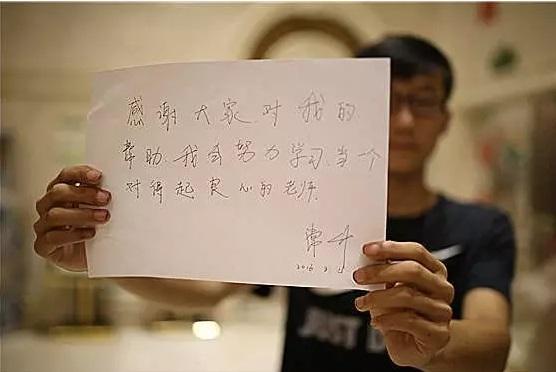 感谢大家对我的
帮助.我会努力学习,当个
对得起良心的老师.
JUST D